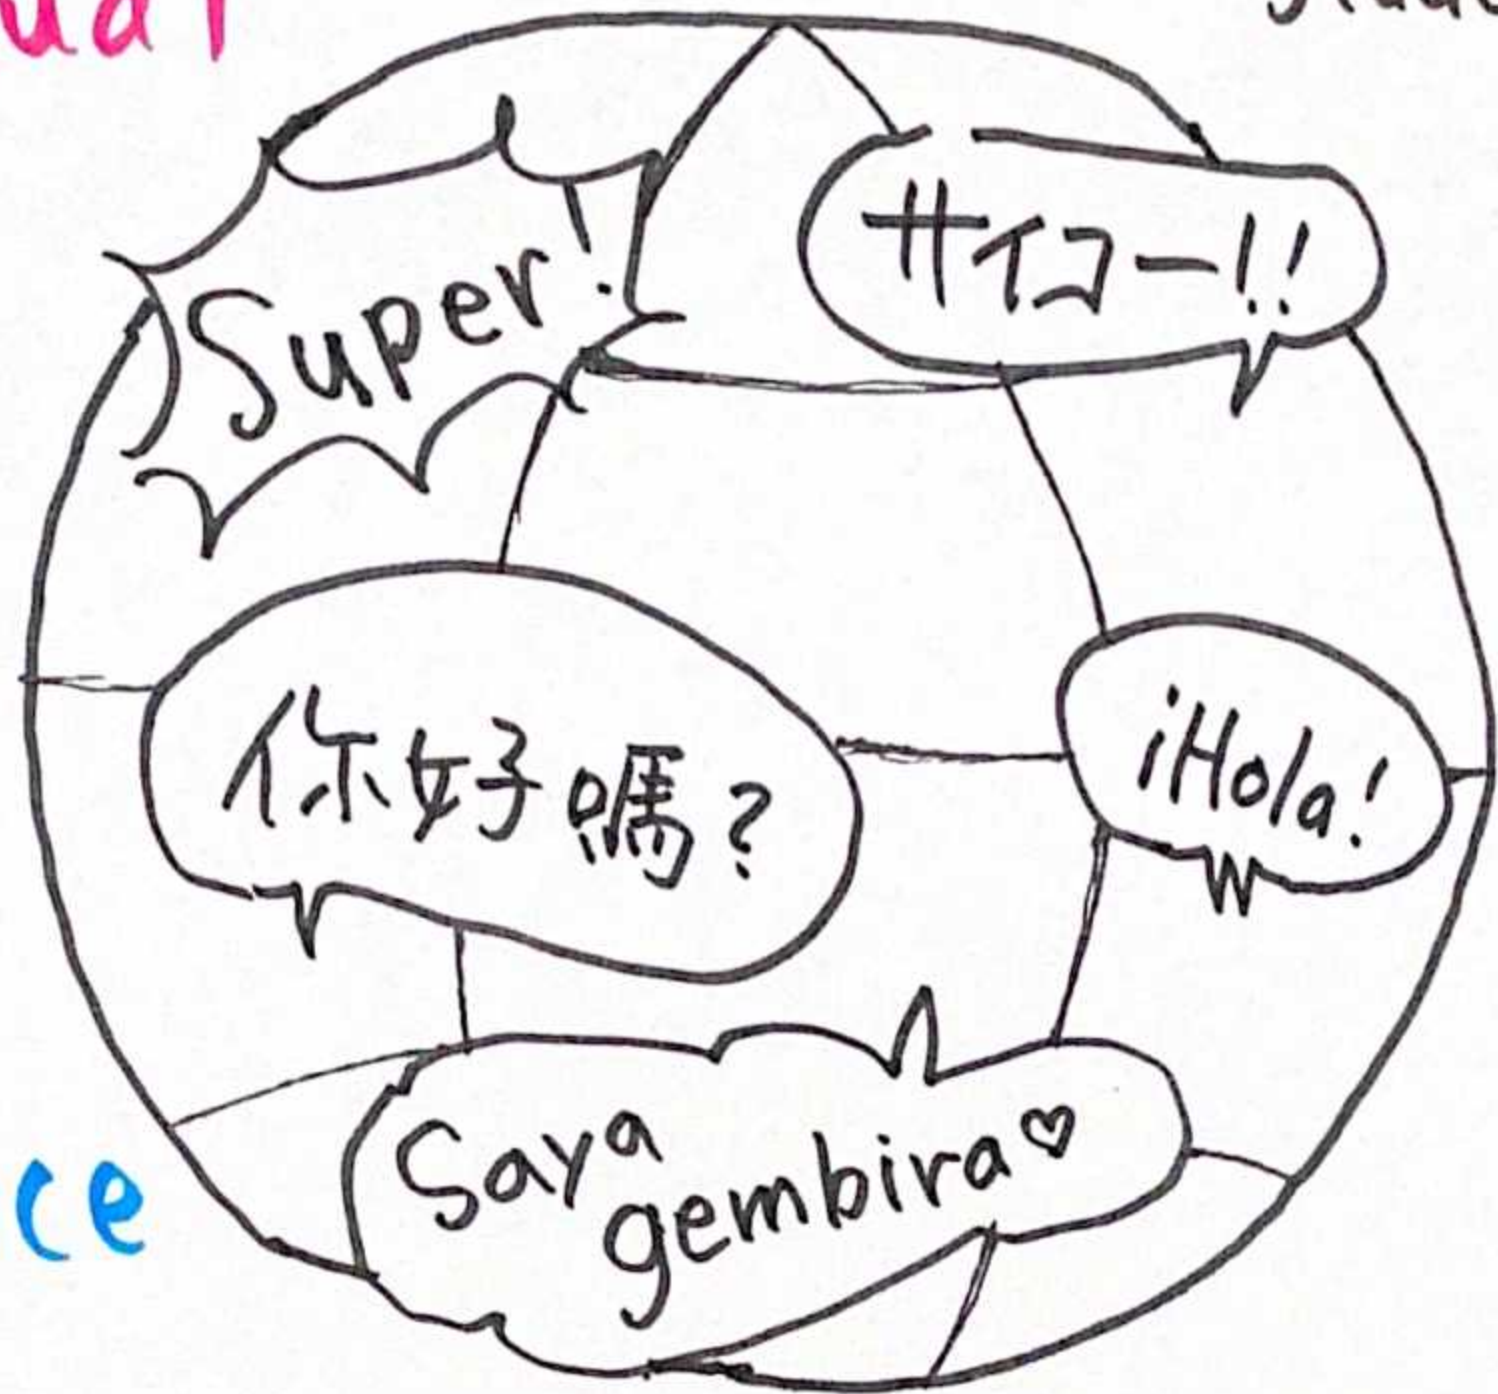 Super!
サイコー!!
你好嗎?
¡Hola!
Saya
gembira♡
ce